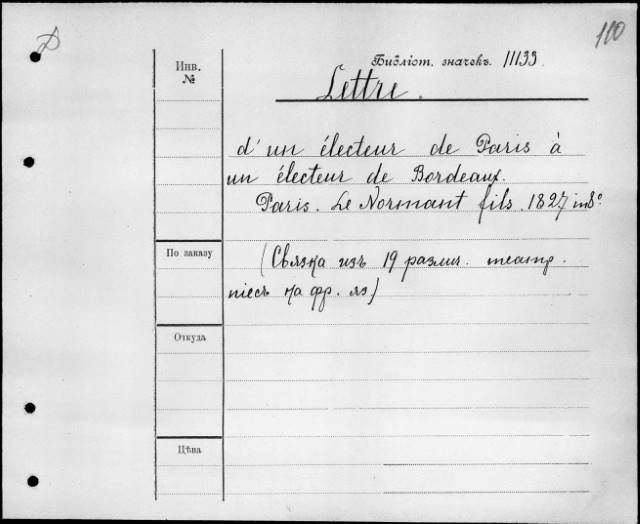 110
Инв. №
Библіот. значекъ. 11133.
Lettre.
d'un électeur de Paris à
un électeur de Bordeaux.
Paris. Le Normant fils. 1827 in 8°
По заказу
(Связка изъ 19 различ. театр.
піесъ на фр. яз)
Откуда
Цѣна